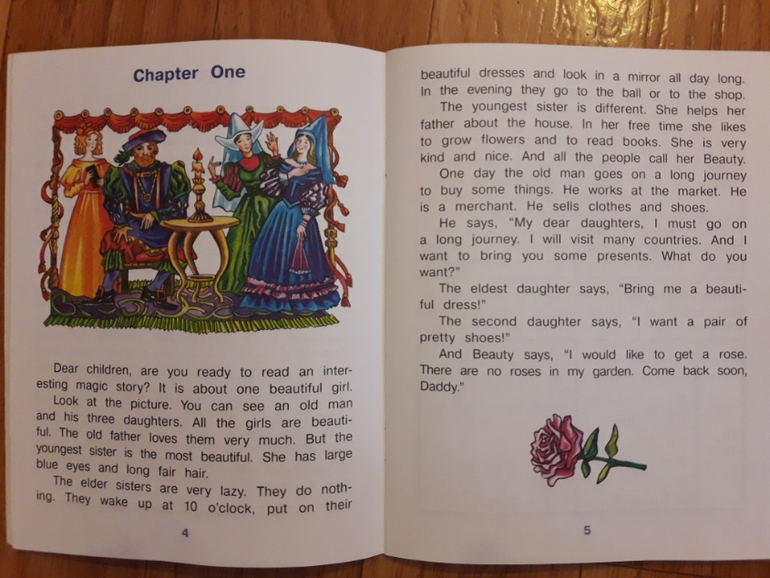 Chapter One
Dear children, are you ready to read an inter-
esting magic story? It is about one beautiful girl.
Look at the picture. You can see an old man
and his three daughters. All the girls are beauti-
ful. The old father loves them very much. But the
youngest sister is the most beautiful. She has large
blue eyes and long fair hair.
The elder sisters are very lazy. They do noth-
ing. They wake up at 10 o'clock, put on their
4
beautiful dresses and look in a mirror all day long.
In the evening they go to the ball or to the shop.
The youngest sister is different. She helps her
father about the house. In her free time she likes
to grow flowers and to read books. She is very
kind and nice. And all the people call her Beauty.
One day the old man goes on a long journey
to buy some things. He works at the market. He
is a merchant. He sells clothes and shoes.
He says, “My dear daughters, I must go on
a long journey. I will visit many countries. And I
want to bring you some presents. What do you
want?”
The eldest daughter says, “Bring me a beauti-
ful dress!”
The second daughter says, “I want a pair of
pretty shoes!”
And Beauty says, “I would like to get a rose.
There are no roses in my garden. Come back soon,
Daddy.”
5